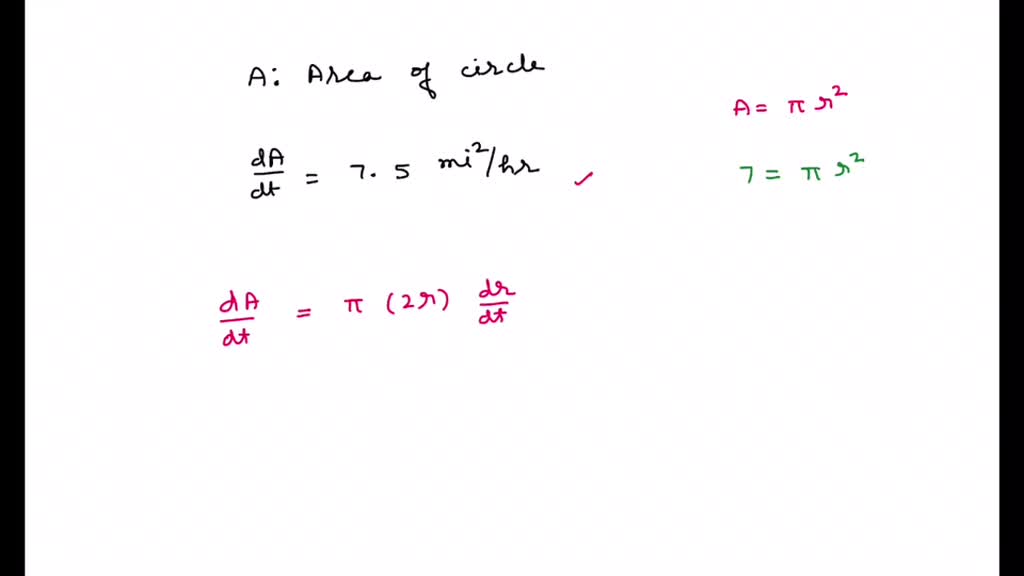 A: Area of circle
A = π r²
dA/dt = 7.5 mi²/hr ✓
7 = π r²
dA/dt = π (2r) dr/dt